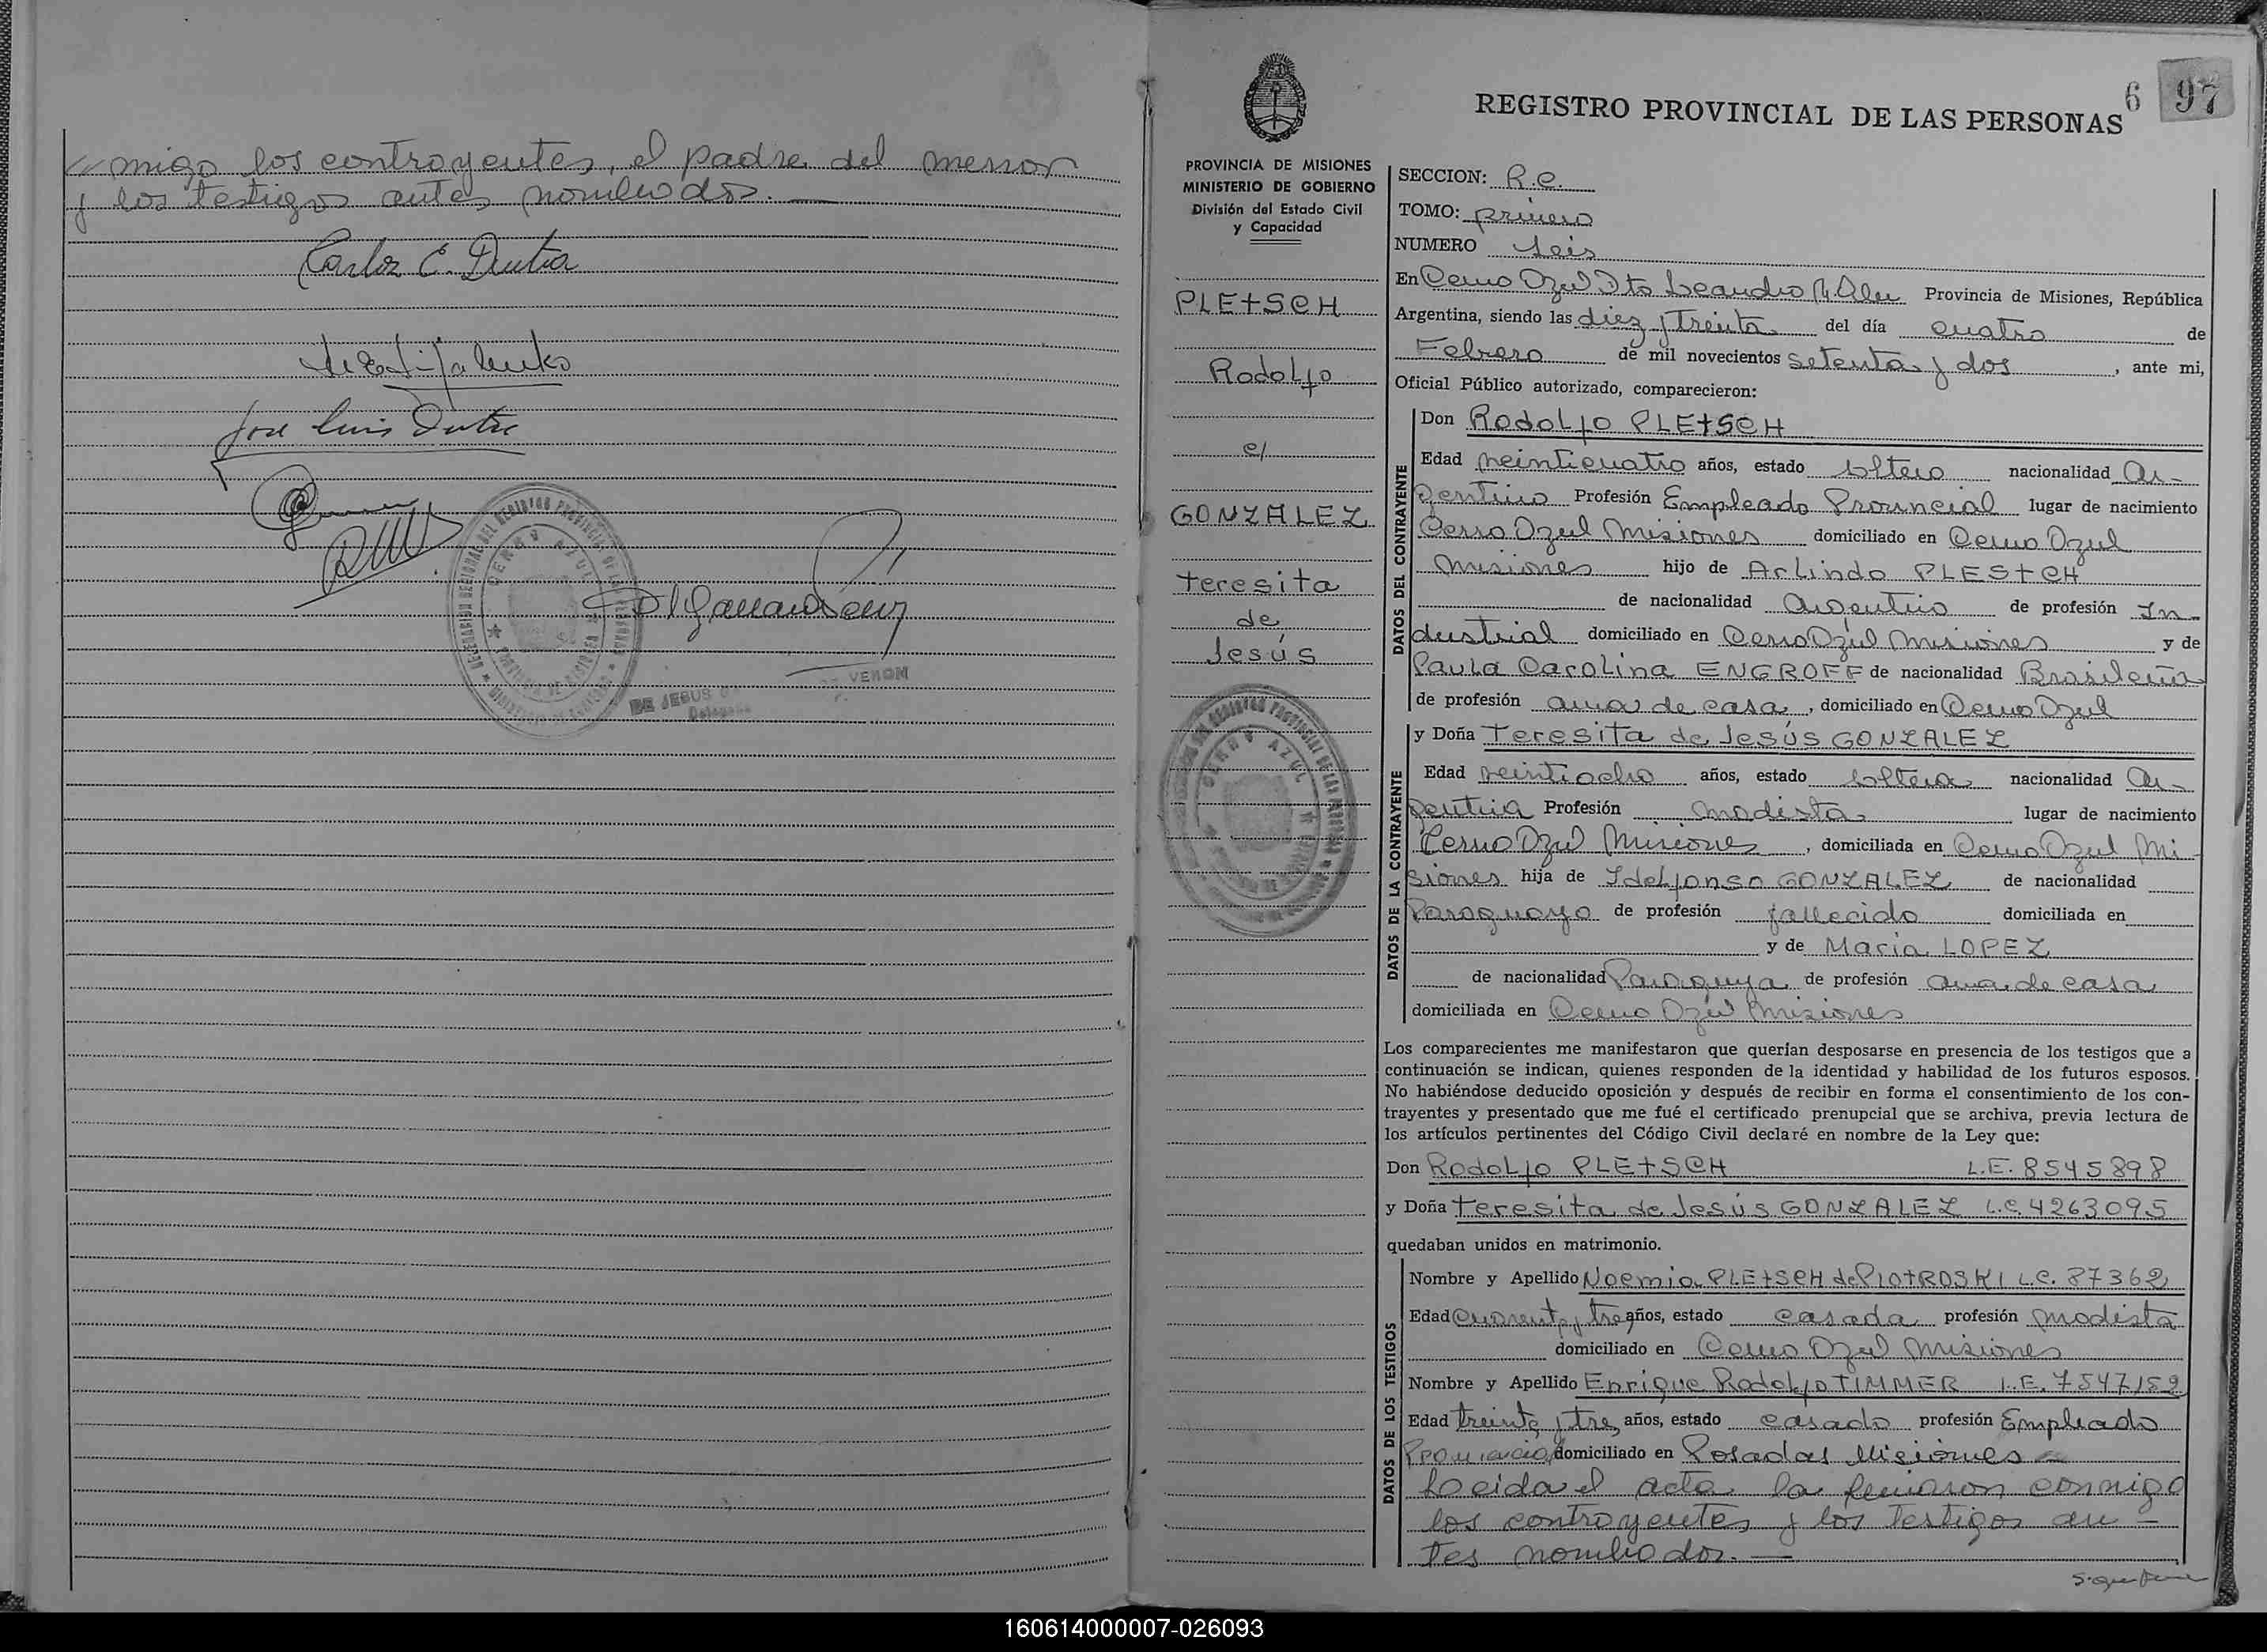 migo los contrayentes, el padre del menor
y los testigos antes nombrados. —
Carlos E. Dutra
Jose Luis Dutra
DELEGACION REGIONAL DEL REGISTRO PROVINCIAL DE LAS PERSONAS
CERRO AZUL
DE JESUS
6 97
REGISTRO PROVINCIAL DE LAS PERSONAS
PROVINCIA DE MISIONES
MINISTERIO DE GOBIERNO
División del Estado Civil
y Capacidad
PLEtSCH
Rodolfo
c/
GONZALEZ
teresita
de
Jesús
CERRO AZUL
SECCION: R.C.
TOMO: primero
NUMERO seis
En Cerro Azul Dto Leandro N. Alem Provincia de Misiones, República
Argentina, siendo las diez y treinta del día cuatro de
Febrero de mil novecientos setenta y dos, ante mi,
Oficial Público autorizado, comparecieron:
DATOS DEL CONTRAYENTE
Don Rodolfo PLEtSCH
Edad veinticuatro años, estado soltero nacionalidad Ar-
gentino Profesión Empleado Provincial lugar de nacimiento
Cerro Azul Misiones domiciliado en Cerro Azul
Misiones hijo de Arlindo PLEStCH
de nacionalidad Argentino de profesión In-
dustrial domiciliado en Cerro Azul Misiones y de
Paula Carolina ENGROFF de nacionalidad Brasileña
de profesión ama de casa, domiciliado en Cerro Azul
DATOS DE LA CONTRAYENTE
y Doña teresita de Jesús GONZALEZ
Edad veintiocho años, estado soltera nacionalidad Ar-
gentina Profesión modista lugar de nacimiento
Cerro Azul Misiones, domiciliada en Cerro Azul Mi
siones hija de Idelfonso GONZALEZ de nacionalidad
Paraguayo de profesión fallecido domiciliada en
y de Maria LOPEZ
de nacionalidad Paraguya de profesión ama de casa
domiciliada en Cerro Azul Misiones
Los comparecientes me manifestaron que querían desposarse en presencia de los testigos que a
continuación se indican, quienes responden de la identidad y habilidad de los futuros esposos.
No habiéndose deducido oposición y después de recibir en forma el consentimiento de los con-
trayentes y presentado que me fué el certificado prenupcial que se archiva, previa lectura de
los artículos pertinentes del Código Civil declaré en nombre de la Ley que:
Don Rodolfo PLEtSCH L.E. 8545898
y Doña teresita de Jesús GONZALEZ L.C. 4263095
quedaban unidos en matrimonio.
DATOS DE LOS TESTIGOS
Nombre y Apellido Noemia PLEtSCH de PIOtROSKI L.C. 87362
Edad cuarenta y tres años, estado casada profesión modista
domiciliado en Cerro Azul Misiones
Nombre y Apellido Enrique Rodolfo TIMMER L.E. 7547152
Edad treinta y tres años, estado casado profesión Empleado
Provincial domiciliado en Posadas Misiones
Leida el acta la firmaron conmigo
los contrayentes y los testigos an-
tes nombrados. —
160614000007-026093